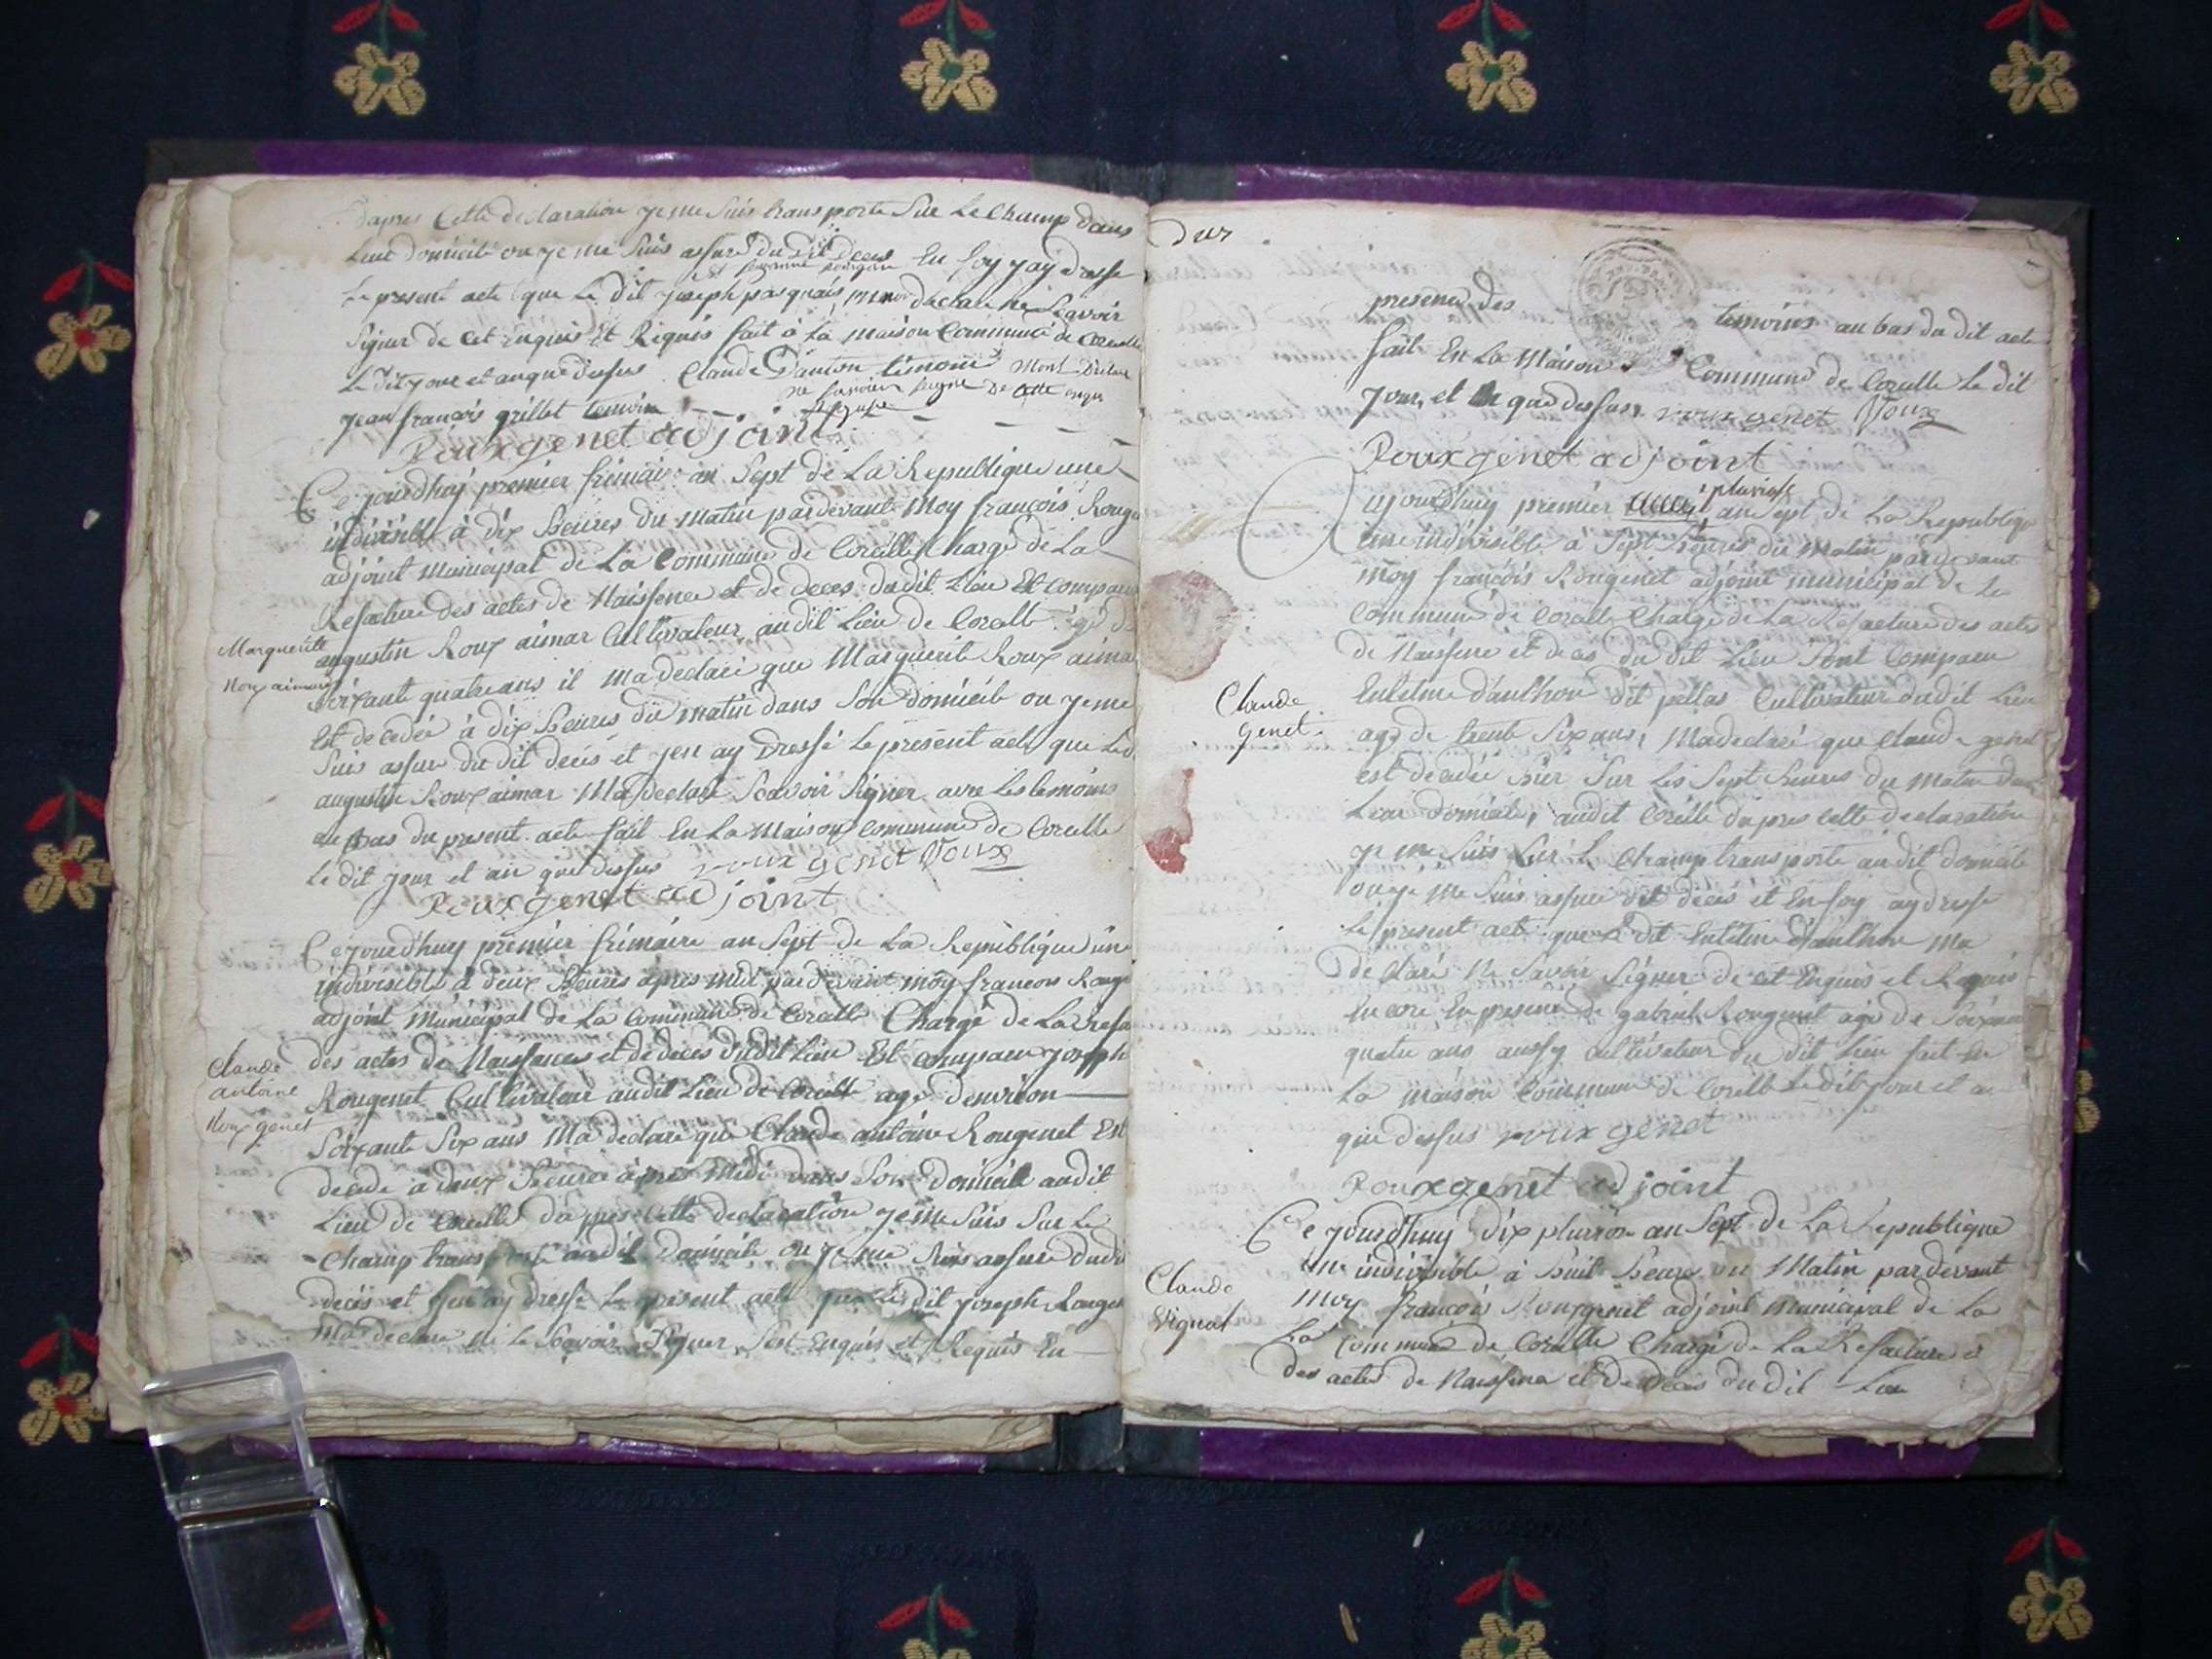 Dapres Cette declaration je me suis transporte sur Le Champ dans
Leur domicile ou je me suis assuré du dit deces En foy jay dressé
Le present acte que Le dit joseph pasquais declare ne Scavoir
Signer de cet enquis Et Requis fait à La maison Commune de
Le dit jour et an que dessus Claude Danton temoin mont Declare
ne Scavoir Signe De cette enquis
jean francois grillet temoin Requise
Rouxgenet adjoint
Ce jourdhuy premier frimaire an Sept de La Republique une
indivisible à dix heures du matin pardevant Moy francois Rouge
adjoint municipal de La Commune de Coralle Chargé de La
Refacture des actes de Naissence et de deces du dit Lieu Est comparu
augustin Roux aimar Cultivateur audit Lieu de Coralle
Marguerite
Roux aimar
soixante quatre ans il ma declaré que Marguerite Roux aimar
Est decedée à dix heures du matin dans Son domicile ou je me
Suis assure du dit decés et jen ay Dressé Le present acte que Led
augustin Roux aimar Ma declaré Scavoir Signer avec Les temoins
au bas du present acte fait En La Maison Commune de Coralle
Le dit jour et an que dessus roux genet Roux
Rouxgenet adjoint
Ce jourdhuy premier frimaire an Sept de La Republique une
indivisible à deux heures apres midi par devant moy francois Rouge
adjoint Municipal de La Commune de Coralle Chargé de La refa
des actes de Naissences et de deces dudit Lieu Est comparu joseph
Claude
antoine
Roux genet
Rougenet Cultivateur audit Lieu de Coralle agé Denviron
Soixante Six ans Ma declaré que Claude antoine Rougenet Est
decede à deux heures apres Midi dans Son domicile audit
Lieu de Coralle dapres Cette declaration je me Suis Sur Le
Champ transporté audit Domicile ou je me Suis assure dudit
decés et jen ay dressé Le present acte que Le dit joseph Rouge
Ma declaré ne Le Scavoir Signer Enquis et Requis En
presence des temoins au bas du dit acte
fait En La Maison Commune de Coralle Le dit
jour, et an que dessus roux genet Roux
Rouxgenet adjoint
Aujourdhuy premier pluviose an Sept de La Republique
une indivisible a Sept heures du Matin pardevant
moy francois Rougenet adjoint municipal de La
Commune de Coralle Chargé de La Refacture des actes
de Naissence et deces du dit Lieu Sont Comparu
Claude
genet
dit pellas Cultivateur dudit Lieu
agé de trente Six ans, Ma declaré que Claude genet
est decedée hier Sur Les Sept heures du Matin dans
Leur domicile, audit Coralle dapres Cette declaration
je me Suis Sur Le Champ transporte au dit domicile
ou je me Suis assure dit decés et En foy ay dressé
Le present acte que Le dit ma
declaré ne Savoir Signer de cet Enquis et Requis
Encore En presence de gabriel Rougenet agé De Soixante
quatre ans aussy Cultivateur du dit Lieu fait En
La maison Commune de Coralle Le dit jour et an
que dessus roux genet
Rouxgenet adjoint
Ce jourdhuy Dix pluviose an Sept de La Republique
une indivisible à huit heures du Matin pardevant
Claude
Vignat
Moy francois Rouxgenet adjoint municipal de La
La Commune de Coralle Chargé de La Refacture
des actes de Naissence et De deces du dit Lieu